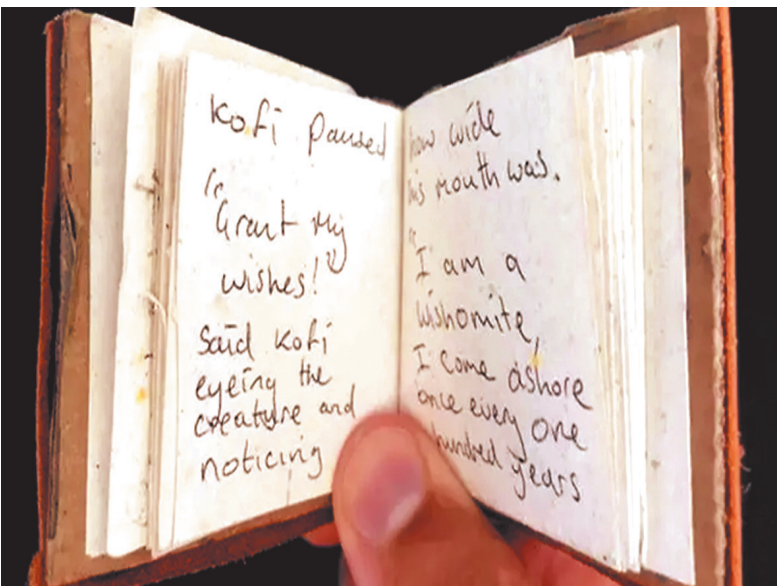 Kofi paused
"Grant My
wishes!"
Said Kofi
eyeing the
creature and
noticing
how wide
his mouth was.
"I am a
wishomite,
I come ashore
once every one
hundred years